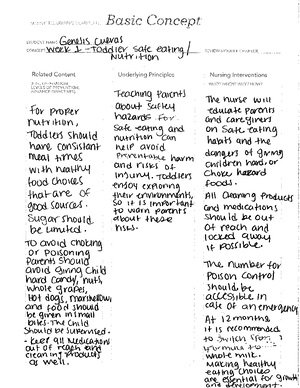 ACTIVE LEARNING TEMPLATE: Basic Concept
STUDENT NAME Genesis Cuevas
CONCEPT Week 1 - Toddler safe eating/
Nutrition
REVIEW MODULE CHAPTER
Related Content
Underlying Principles
Nursing Interventions
For proper
nutrition,
Toddlers should
have consistant
meal times
with healthy
food choices
that are of
good sources.
Sugar should
be limited.
TO avoid choking
or poisoning
Parents should
avoid giving child
hard candy, nuts,
whole grapes,
Hot dogs, marshmellows
and food should
be given in small
bites. The child
should be supervised.
- Keep all medications
out of reach and
cleaning products
as well.
Teaching Parents
about safety
hazards for
safe eating and
nutrition can
help avoid
Preventable harm
and risks of
injury. Toddlers
enjoy exploring
their environments,
so it is important
to warn parents
about these
risks.
The nurse will
educate parents
and caregivers
on safe eating
habits and the
dangers of giving
children hard, or
choke hazard
foods.
All cleaning products
and medications
should be out
of reach and
locked away
if possible.
The number for
Poison Control
should be
accessible in
case of an emergency
At 12 months
it is recommended
to switch from
formula to
whole milk.
Making healthy
eating choices
are essential for growth
and development.